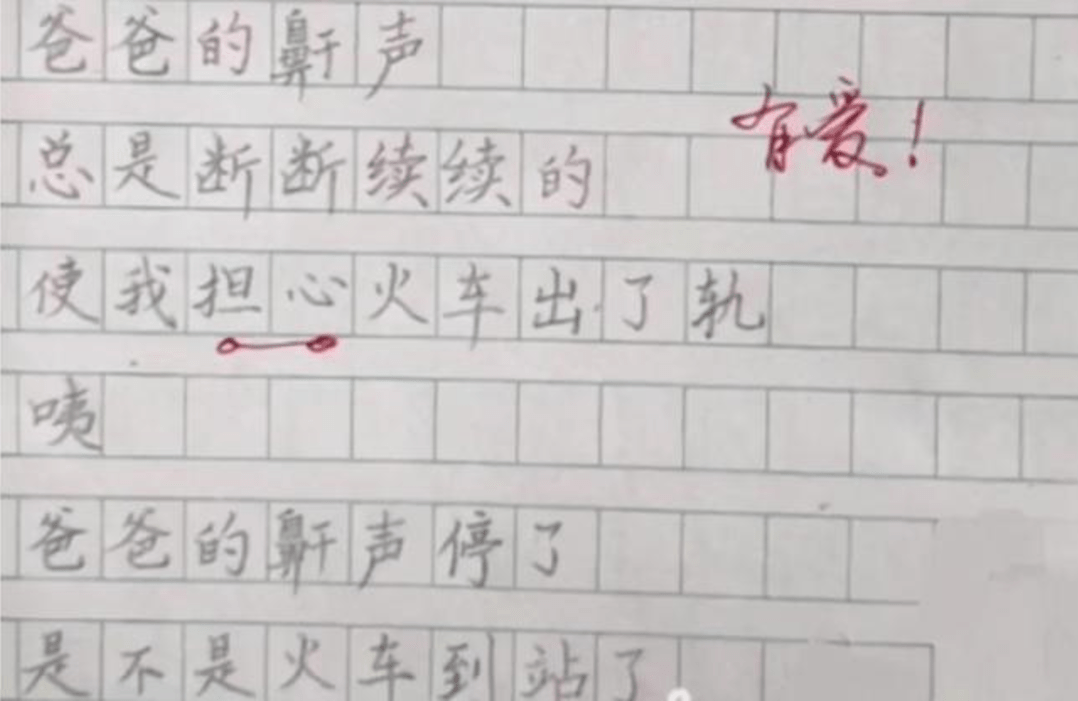 爸爸的鼾声
有爱！
总是断断续续的
使我担心火车出了轨
咦
爸爸的鼾声停了
是不是火车到站了